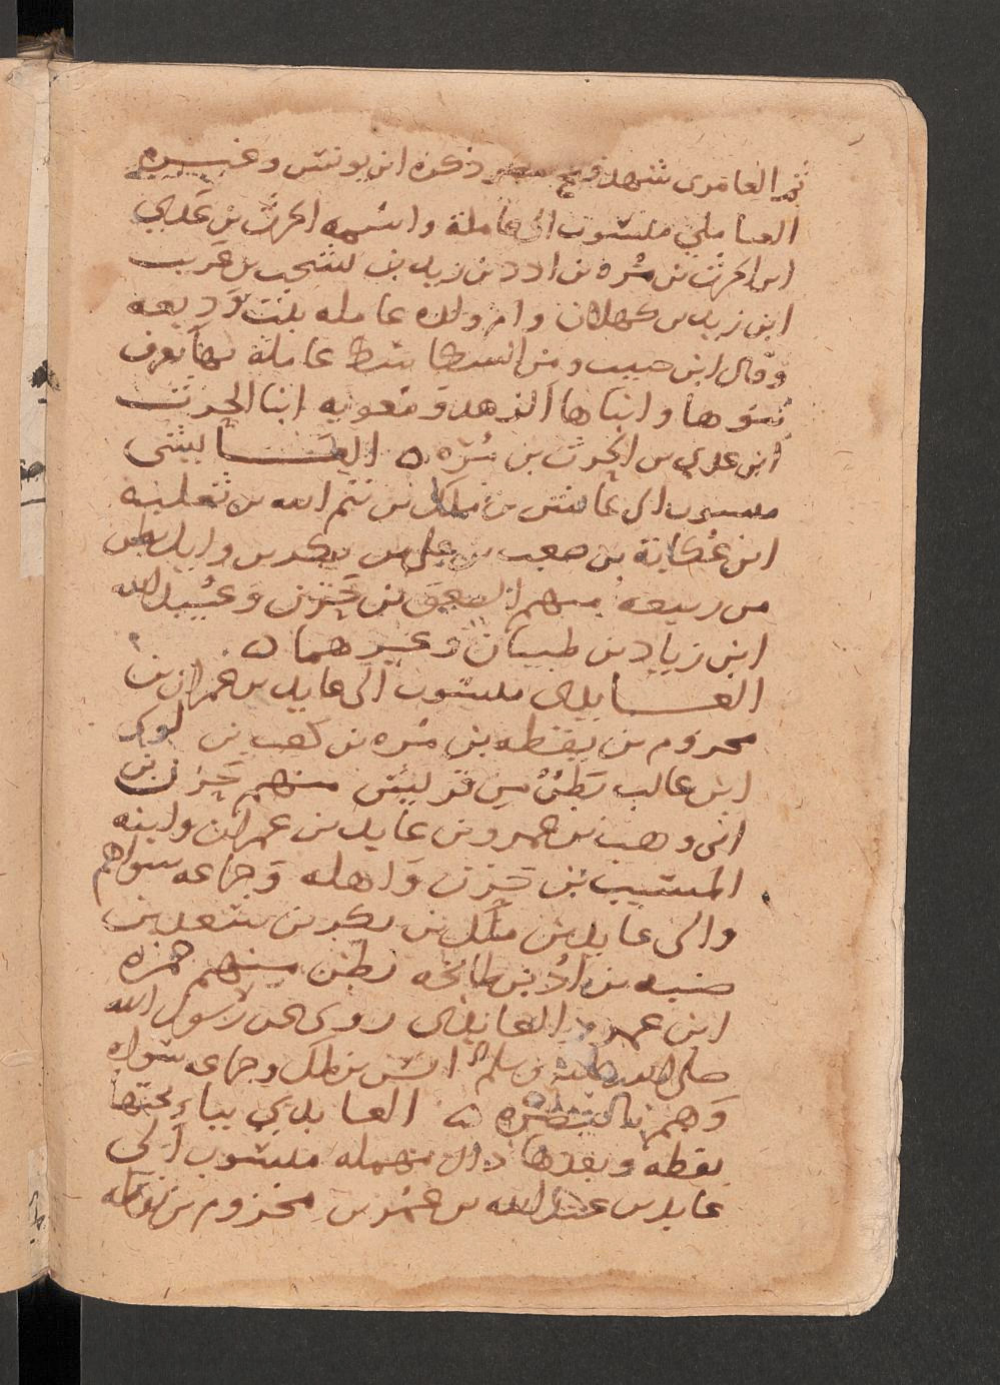 ثم الغامدى شهد فتح مصر ذكره ابن يونس وغيره
العاملي منسوب الى عاملة واسمه الحرث بن عدي
ابن الحرث بن مره بن ادد بن زيد بن يشجب بن عريب
ابن زيد بن كهلان وام ولده عامله بنت وديعه
وقال ابن حبيب ومن عاملة بها يعرف
بنوها وابناها الزهد ومعويه ابنا الحرث
ابن عدي بن الحرث بن مره ٥ العايشى
منسوب الى عايش بن ملك بن تيم الله بن ثعلبه
ابن عكابة بن صعب بن على بن بكر بن وايل بطن
من ربيعه منهم الصعق بن حزن وعبيد الله
ابن زياد بن ظبيان وغيرهما ٥
العايذى منسوب الى عايذ بن عمران بن
مخزوم بن يقظه بن مره بن كعب بن لوى
ابن غالب بطن من قريش منهم حزن بن
ابى وهب بن عمرو بن عايذ بن عمران وابنه
المسيب بن حزن واهله وجماعه سواهم
والى عايذ بن ملك بن بكر بن سعد بن
ضبه بن اد بن طابخه بطن منهم حمزه
ابن عمرو العايذى روى عن رسول الله
صلى الله عليه وسلم انس بن ملك وجماعه سواه
وهم بالبصره ٥ العابدي بباء تحتها
نقطه وبعدها دال مهمله منسوب الى
عابد بن عبد الله بن عمر بن مخزوم بن يقظه